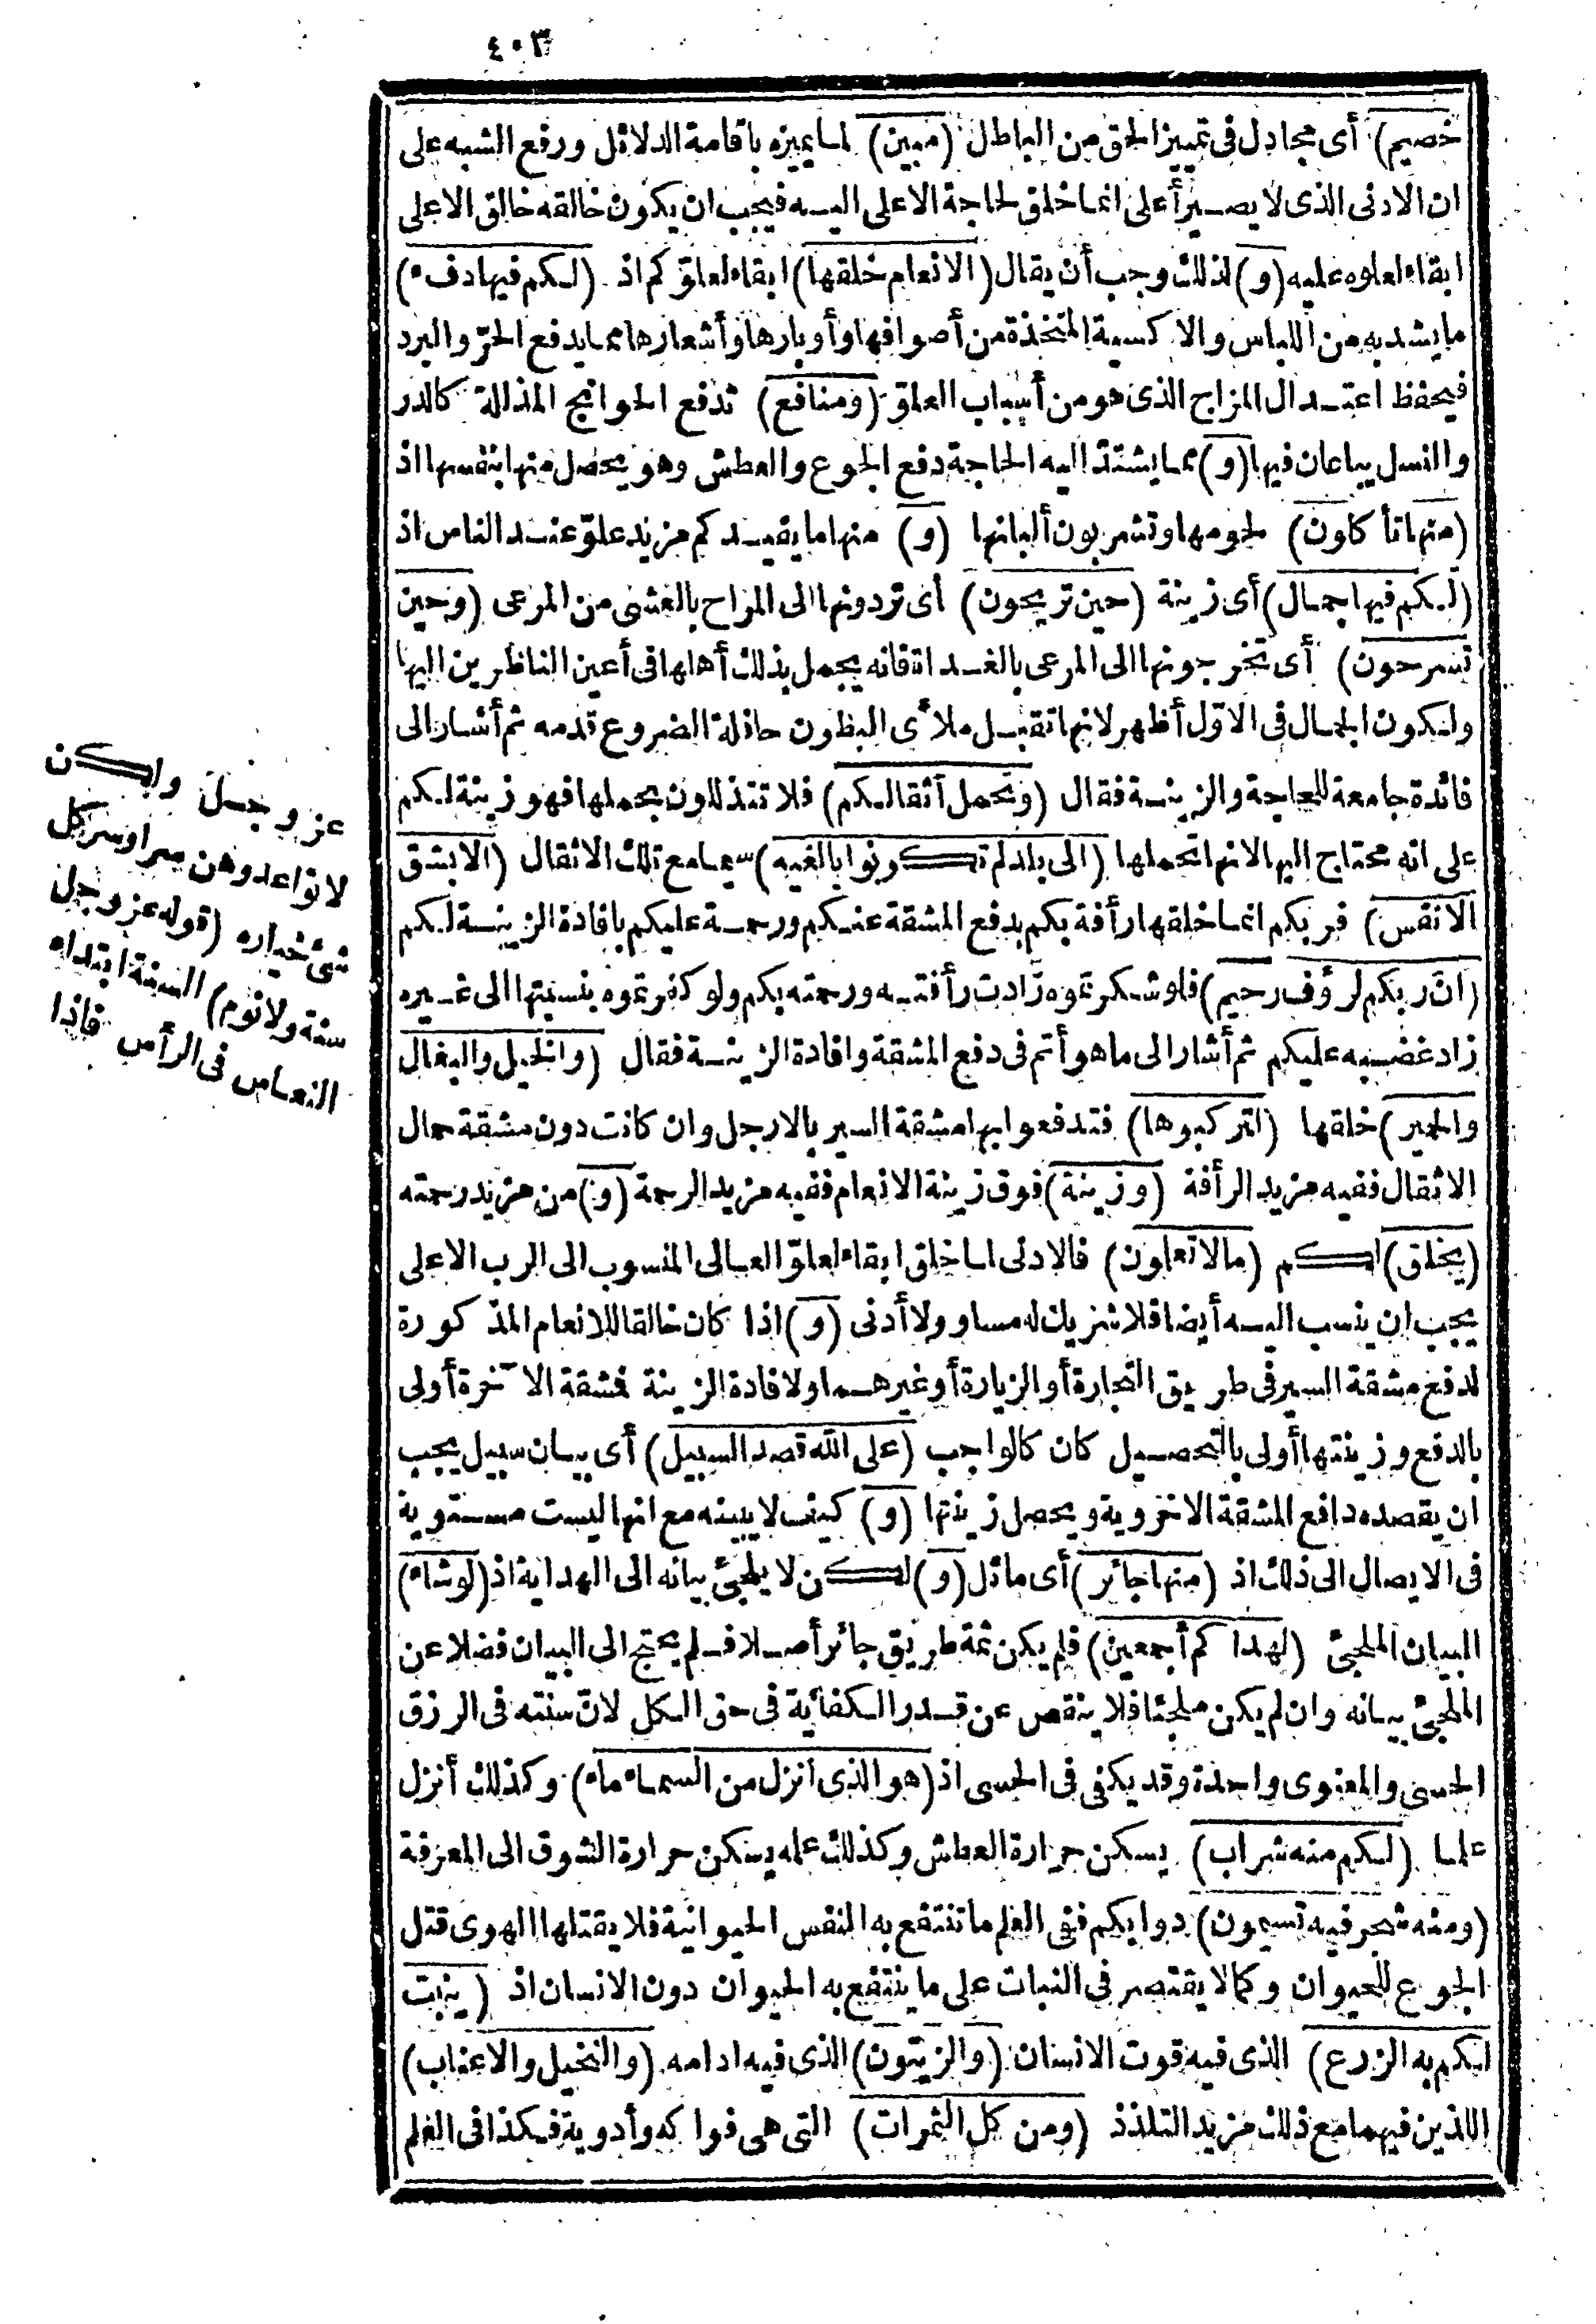 ٤٠٣
خصيم) أى مجادل فى تمييز الحق من الباطل (مبين) لما يميزه باقامة الدلائل ورفع الشبه على
ان الادنى الذى لا يصير أعلى انما خلق لحاجة الاعلى اليه فيجب ان يكون خالقه خالق الاعلى
ابقاء لعلوه عليه (و) لذلك وجب أن يقال (الانعام خلقها) ابقاء لعلوّكم اذ (لكم فيها دفء)
ما يشد به من اللباس والاكسية المتخذة من أصوافها وأوبارها وأشعارها مما يدفع الحرّ والبرد
فيحفظ اعتدال المزاج الذى هو من أسباب العلوّ (ومنافع) تدفع الحوائج المذلة كالدر
والنسل يباعان فيها (و) مما يشتدّ اليه الحاجة دفع الجوع والعطش وهو يحصل منها بنفسها اذ
(منها تأكلون) لحومها وتشربون ألبانها (و) منها ما يفيدكم مزيد علوّ عند الناس اذ
(لكم فيها جمال) أى زينة (حين تريحون) أى تردونها الى المراح بالعشى من المرعى (وحين
تسرحون) أى تخرجونها الى المرعى بالغداة فانه يجمل بذلك أهلها فى أعين الناظرين اليها
ولكون الجمال فى الاوّل أظهر لانها تقبل ملأى البطون حافلة الضروع قدمه ثم أشار الى
فائدة جامعة للحاجة والزينة فقال (وتحمل أثقالكم) فلا تتذللون بحملها فهو زينة لكم
على انه محتاج اليها لانها تحملها (الى بلد لم تكونوا بالغيه) سيما مع تلك الاثقال (الا بشق
الانفس) فربكم انما خلقها رأفة بكم بدفع المشقة عنكم ورحمة عليكم بافادة الزينة لكم
(انّ ربكم لرؤف رحيم) فلو شكرتموه زادت رأفته ورحمته بكم ولو كفرتموه بنسبتها الى غيره
زاد غضبه عليكم ثم أشار الى ما هو أتم فى دفع المشقة وافادة الزينة فقال (والخيل والبغال
والحمير) خلقها (لتركبوها) فتدفعوا بها مشقة السير بالارجل وان كانت دون مشقة حمال
الاثقال ففيه مزيد الرأفة (وزينة) فوق زينة الانعام ففيه مزيد الرحمة (و) من مزيد رحمته
(يخلق) لكم (ما لا تعلمون) فالادنى لما خلق ابقاء لعلوّ العالى المنسوب الى الرب الاعلى
يجب ان ينسب اليه أيضا فلا شريك له مساو ولا أدنى (و) اذا كان خالقا للانعام المذكورة
لدفع مشقة السير فى طريق التجارة أو الزيارة أو غيرهما ولافادة الزينة فمشقة الآخرة أولى
بالدفع وزينتها أولى بالتحصيل كان كالواجب (على الله قصد السبيل) أى بيان سبيل يجب
ان يقصده دافع المشقة الاخروية ويحصل زينتها (و) كيف لا يبينه مع انها ليست مستوية
فى الايصال الى ذلك اذ (منها جائر) أى مائل (و) لكن لا يلجئ بيانه الى الهداية اذ (لو شاء)
البيان الملجئ (لهداكم أجمعين) فلم يكن ثمة طريق جائر أصلا فلم يحتج الى البيان فضلا عن
الملجئ بيانه وان لم يكن ملجئا فلا ينقص عن قدر الكفاية فى حق الكل لانّ سنته فى الرزق
الحسى والمعنوى واحدة وقد يكفى فى الحسى اذ (هو الذى أنزل من السماء ماء) وكذلك أنزل
علما (لكم منه شراب) يسكن حرارة العطش وكذلك علمه يسكن حرارة الشوق الى المعرفة
(ومنه شجر فيه تسيمون) دوابكم ففى العلم ما تنتفع به النفس الحيوانية فلا يقتلها الهوى قتل
الجوع للحيوان وكما لا يقتصر فى النبات على ما ينتفع به الحيوان دون الانسان اذ (ينبت
لكم به الزرع) الذى فيه قوت الانسان (والزيتون) الذى فيه ادامه (والنخيل والاعناب)
اللذين فيهما مع ذلك مزيد التلذذ (ومن كل الثمرات) التى هى فواكه وأدوية فكذا فى العلم
عز وجل ولكن
لا تواعدوهن سرا وسر كل
شئ خياره (قوله عز وجل
سنة ولا نوم) السنة ابتداء
النعاس فى الرأس فاذا